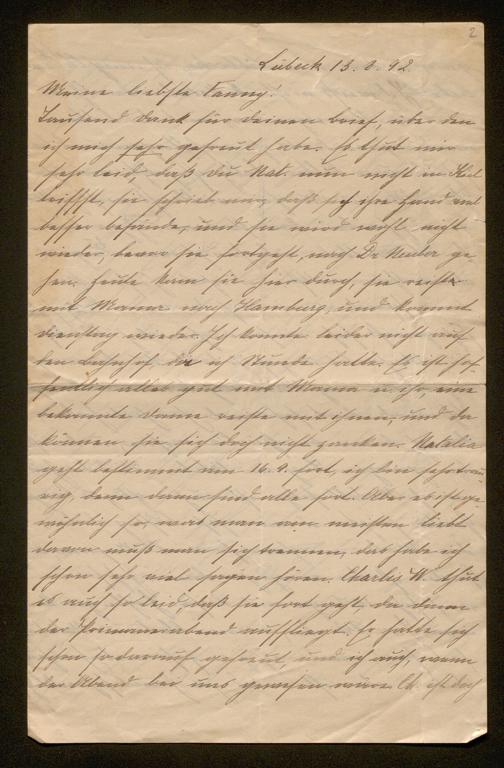 2
Lübeck 13. 8. 92.
Meine liebste Fanny!
Tausend Dank für Deinen Brief, über den
ich mich sehr gefreut habe. Es thut mir
sehr leid, daß du Nat. nun nicht in Kiel
triffst, sie schrieb nur, daß sich ihre Hand viel
besser befände, und sie wird wohl nicht
wieder, bevor sie fortgeht, nach Dr Neuber ge-
hen. Heute kam sie hier durch, sie reiste
mit Mama nach Hamburg, und kommt
Dienstag wieder. Ich konnte leider nicht auf
den Bahnhof, da ich Stunde hatte. Es ist hof-
fentlich alles gut mit Mama u. ihr, eine
bekannte Dame reiste mit ihnen, und da
können sie sich doch nicht zanken. Natalia
geht bestimmt am 16. 9. fort, ich bin sehr trau-
rig, denn dann sind alle fort. Aber es ist ge-
wöhnlich so, was man am meisten liebt
davon muß man sich trennen, das habe ich
schon sehr viel sagen hören. Charlis W. thut
es auch so leid, daß sie fort geht, da dann
der Primanerabend auffliegt. Er hatte sich
schon so darauf gefreut, und ich auch, wenn
der Abend bei uns gewesen wäre. Ch. ist doch